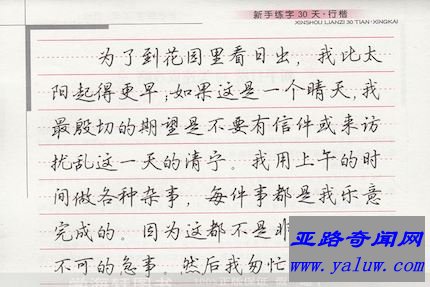 新手练字30天·行楷
XINSHOU LIANZI 30 TIAN·XINGKAI
为了到花园里看日出，我比太
阳起得更早；如果这是一个晴天，我
最殷切的期望是不要有信件或来访
扰乱这一天的清宁。我用上午的时
间做各种杂事，每件事都是我乐意
完成的。因为这都不是非
不可的急事，然后我匆忙
亚路奇闻网
www.yaluw.com